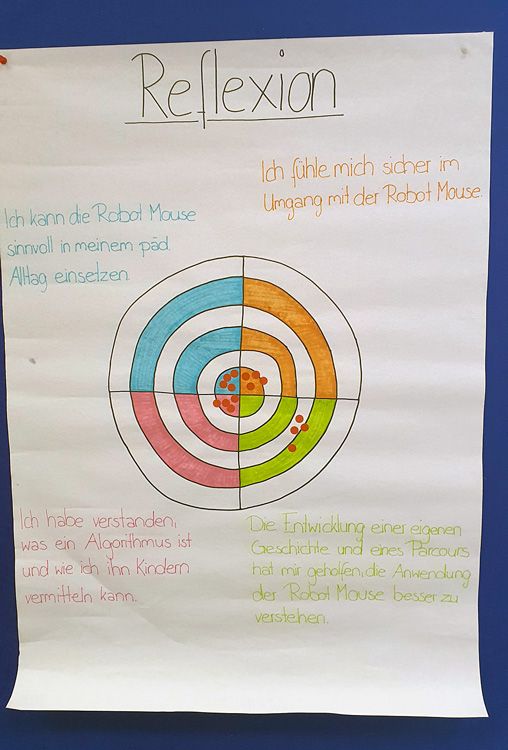 Reflexion
Ich fühle mich sicher im
Umgang mit der Robot Mouse.
Ich kann die Robot Mouse
sinnvoll in meinem päd.
Alltag einsetzen.
Ich habe verstanden,
was ein Algorithmus ist
und wie ich ihn Kindern
vermitteln kann.
Die Entwicklung einer eigenen
Geschichte und eines Parcours
hat mir geholfen, die Anwendung
der Robot Mouse besser zu
verstehen.